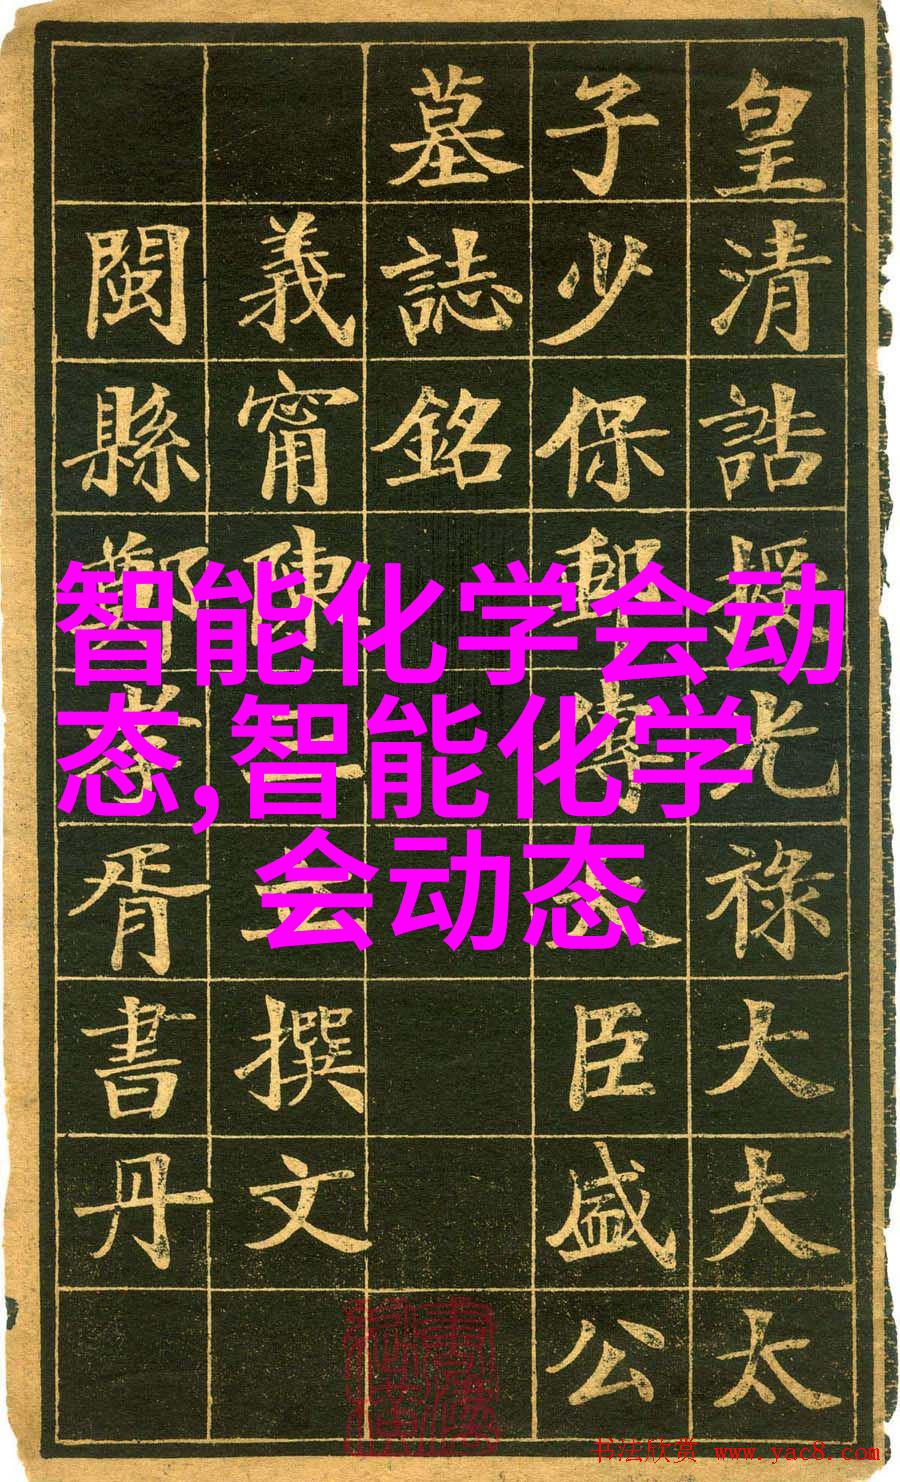 皇清誥授光祿大夫太
子少保郵傳大臣盛公
墓誌銘
義甯陳三立撰文
閩縣鄭孝胥書丹
智能化学会动
态,智能化学
会动态
书法欣赏 www.yac8.com